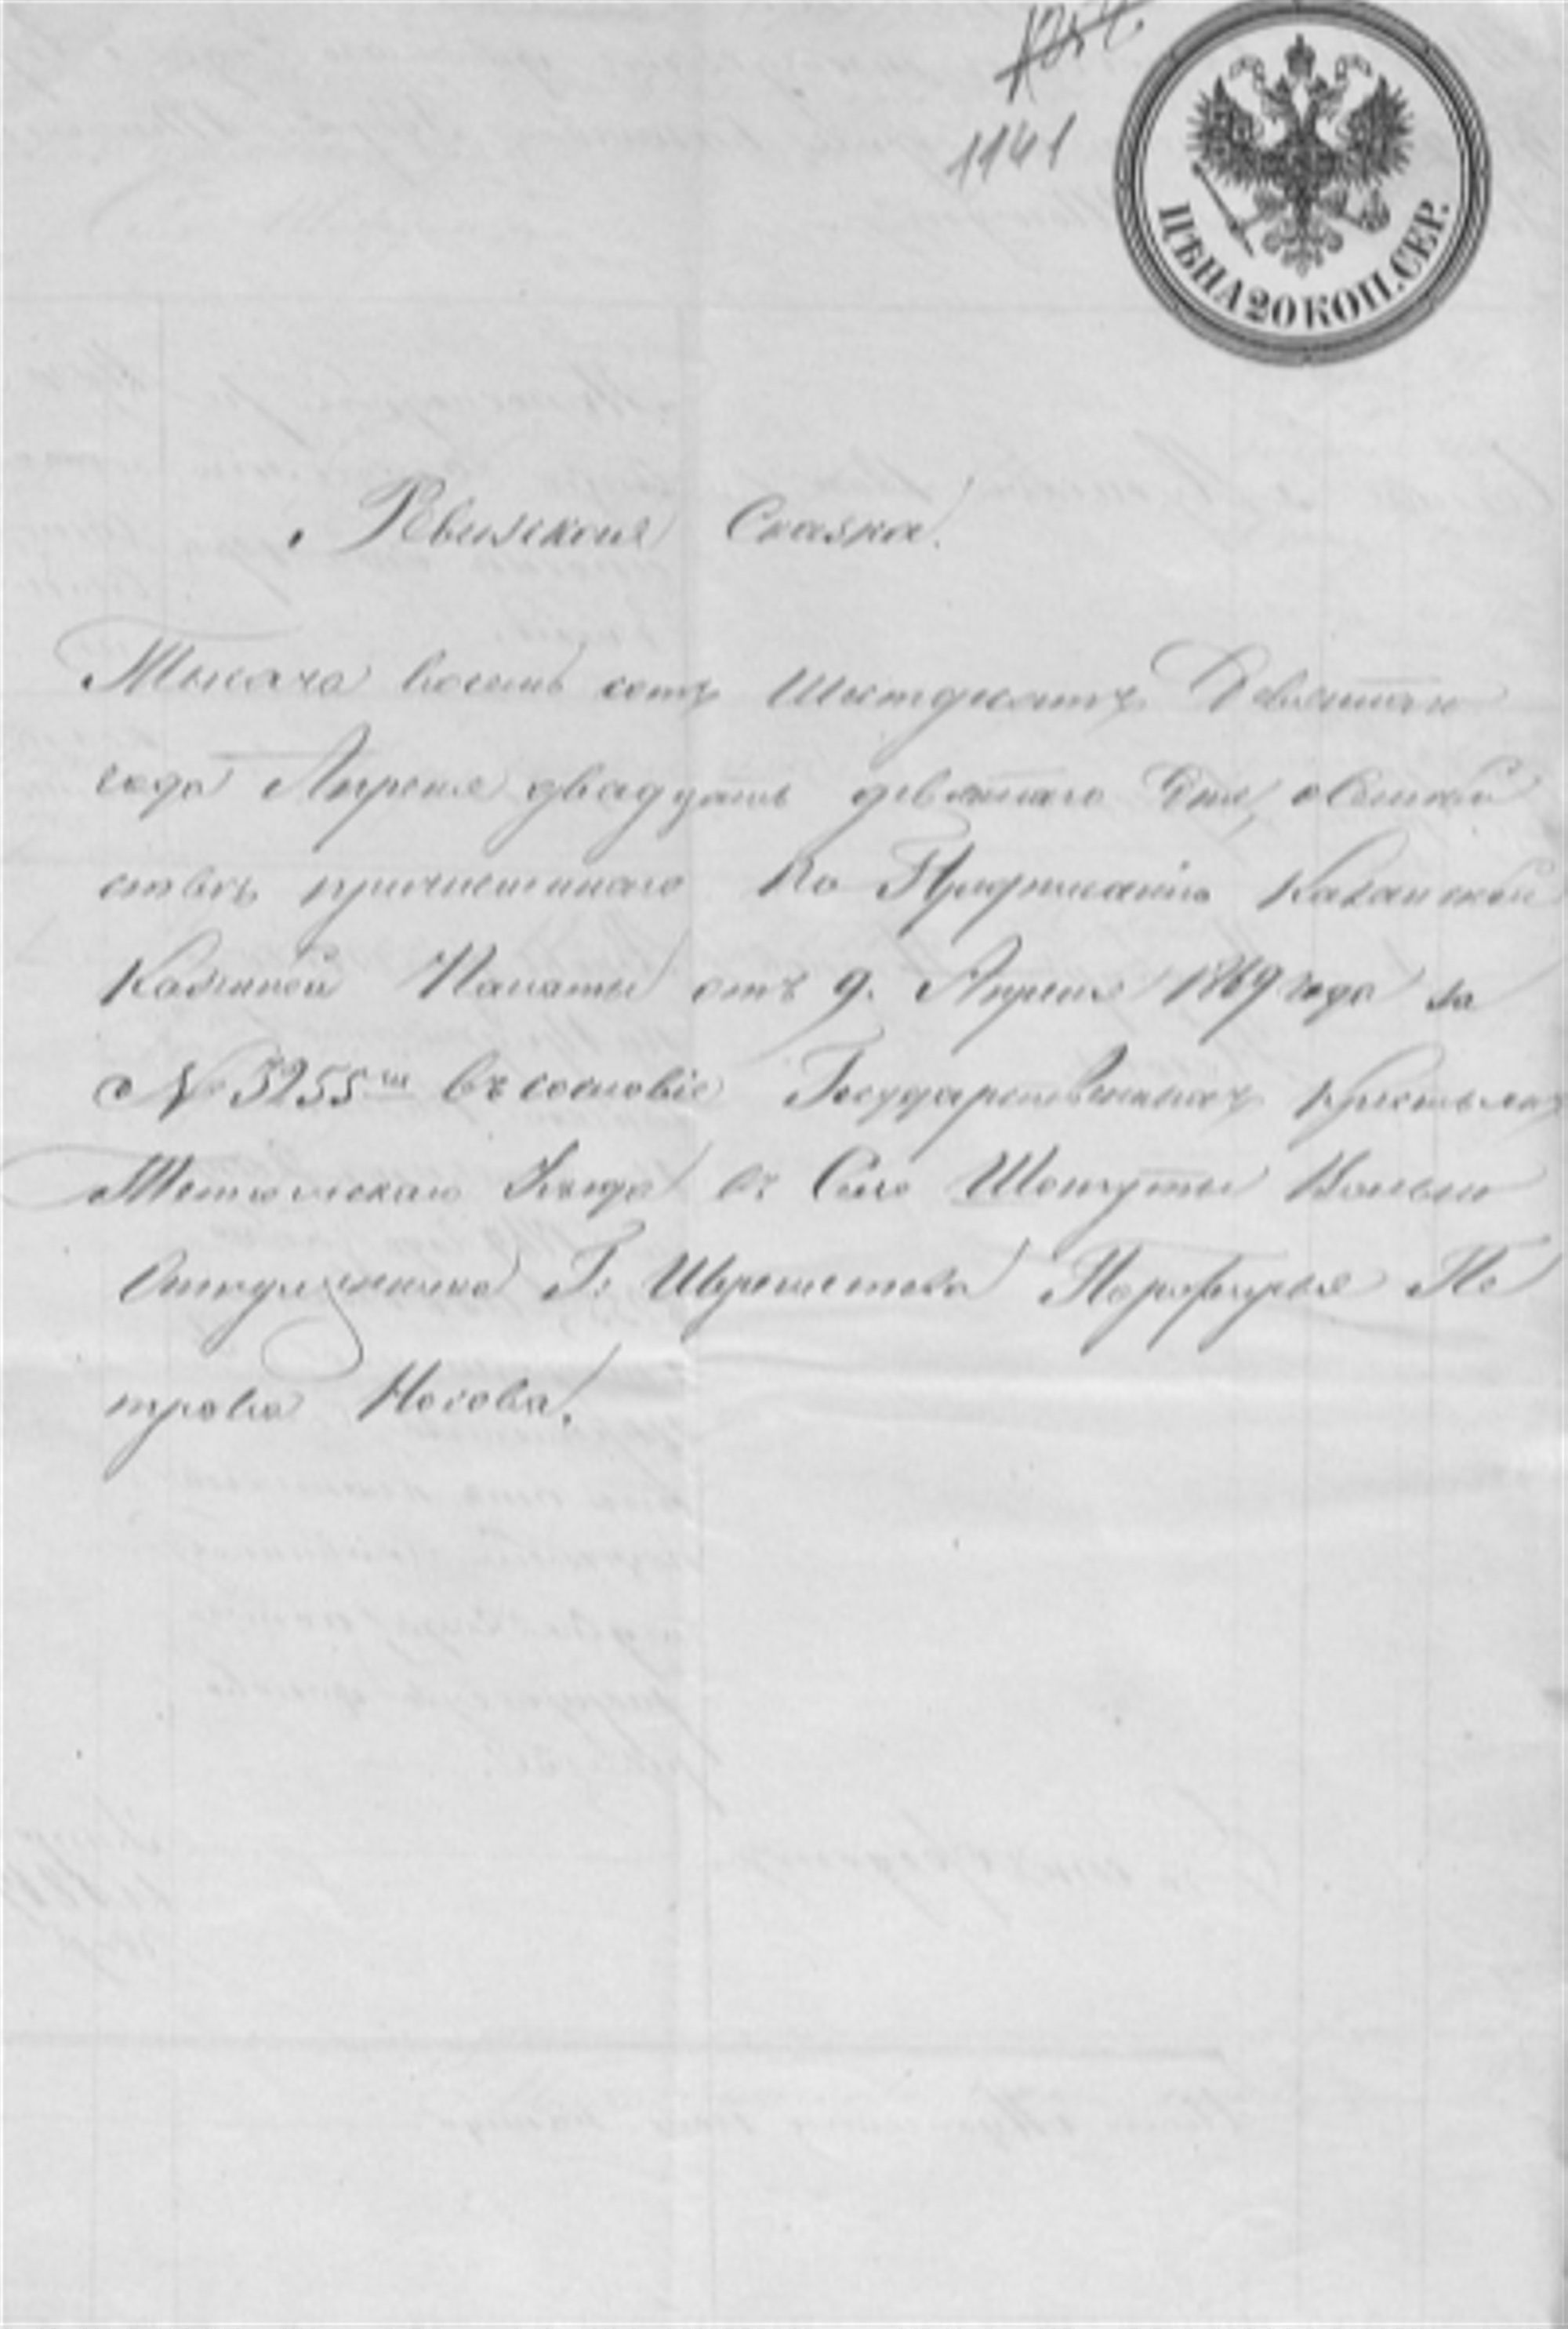 1141
ЦѢНА 20 КОП. СЕР.
Ревизская Сказка.
Тысяча восемь сотъ Шестдесятъ Девятаго
года Апреля двадцать девятаго Дня, о Семей
ствѣ причисленнаго По Предписанію Казанской
Казенной Палаты отъ 9. Апреля 1869 года за
№ 3255 въ сословіе Государственныхъ Крестьянъ
Тетюшскаго Уѣзда въ Село Шонгуты Вольно
Отпущеннаго Г. Шереметева Порфирья Пе
трова Носова.